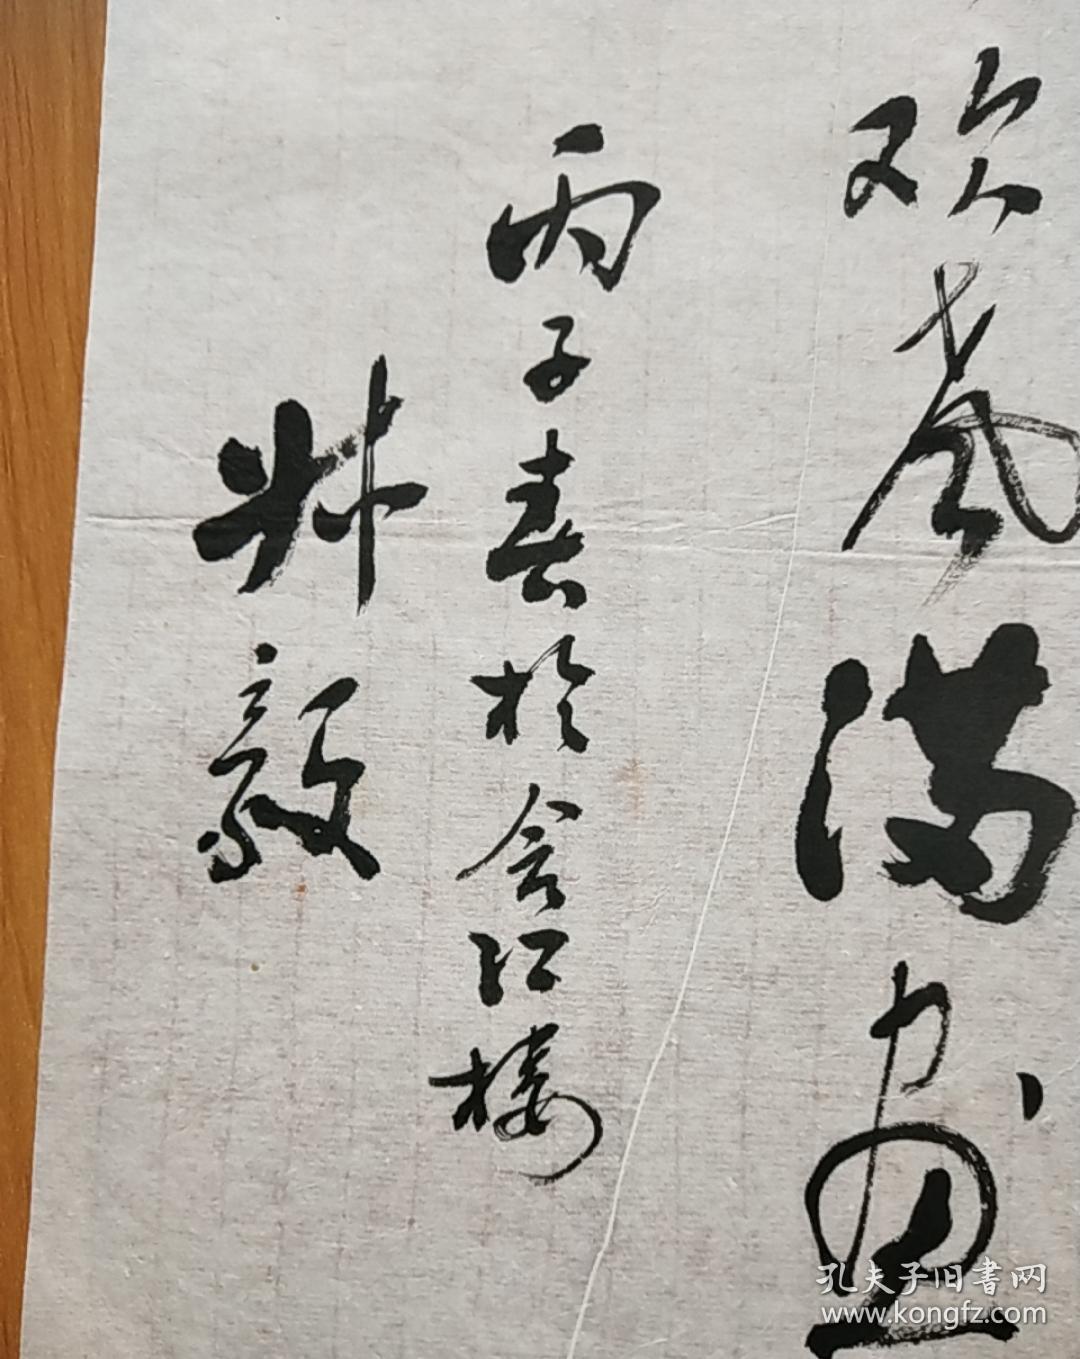 欢 满画
丙子春於含江楼
艸毅
孔夫子旧书网
www.kongfz.com